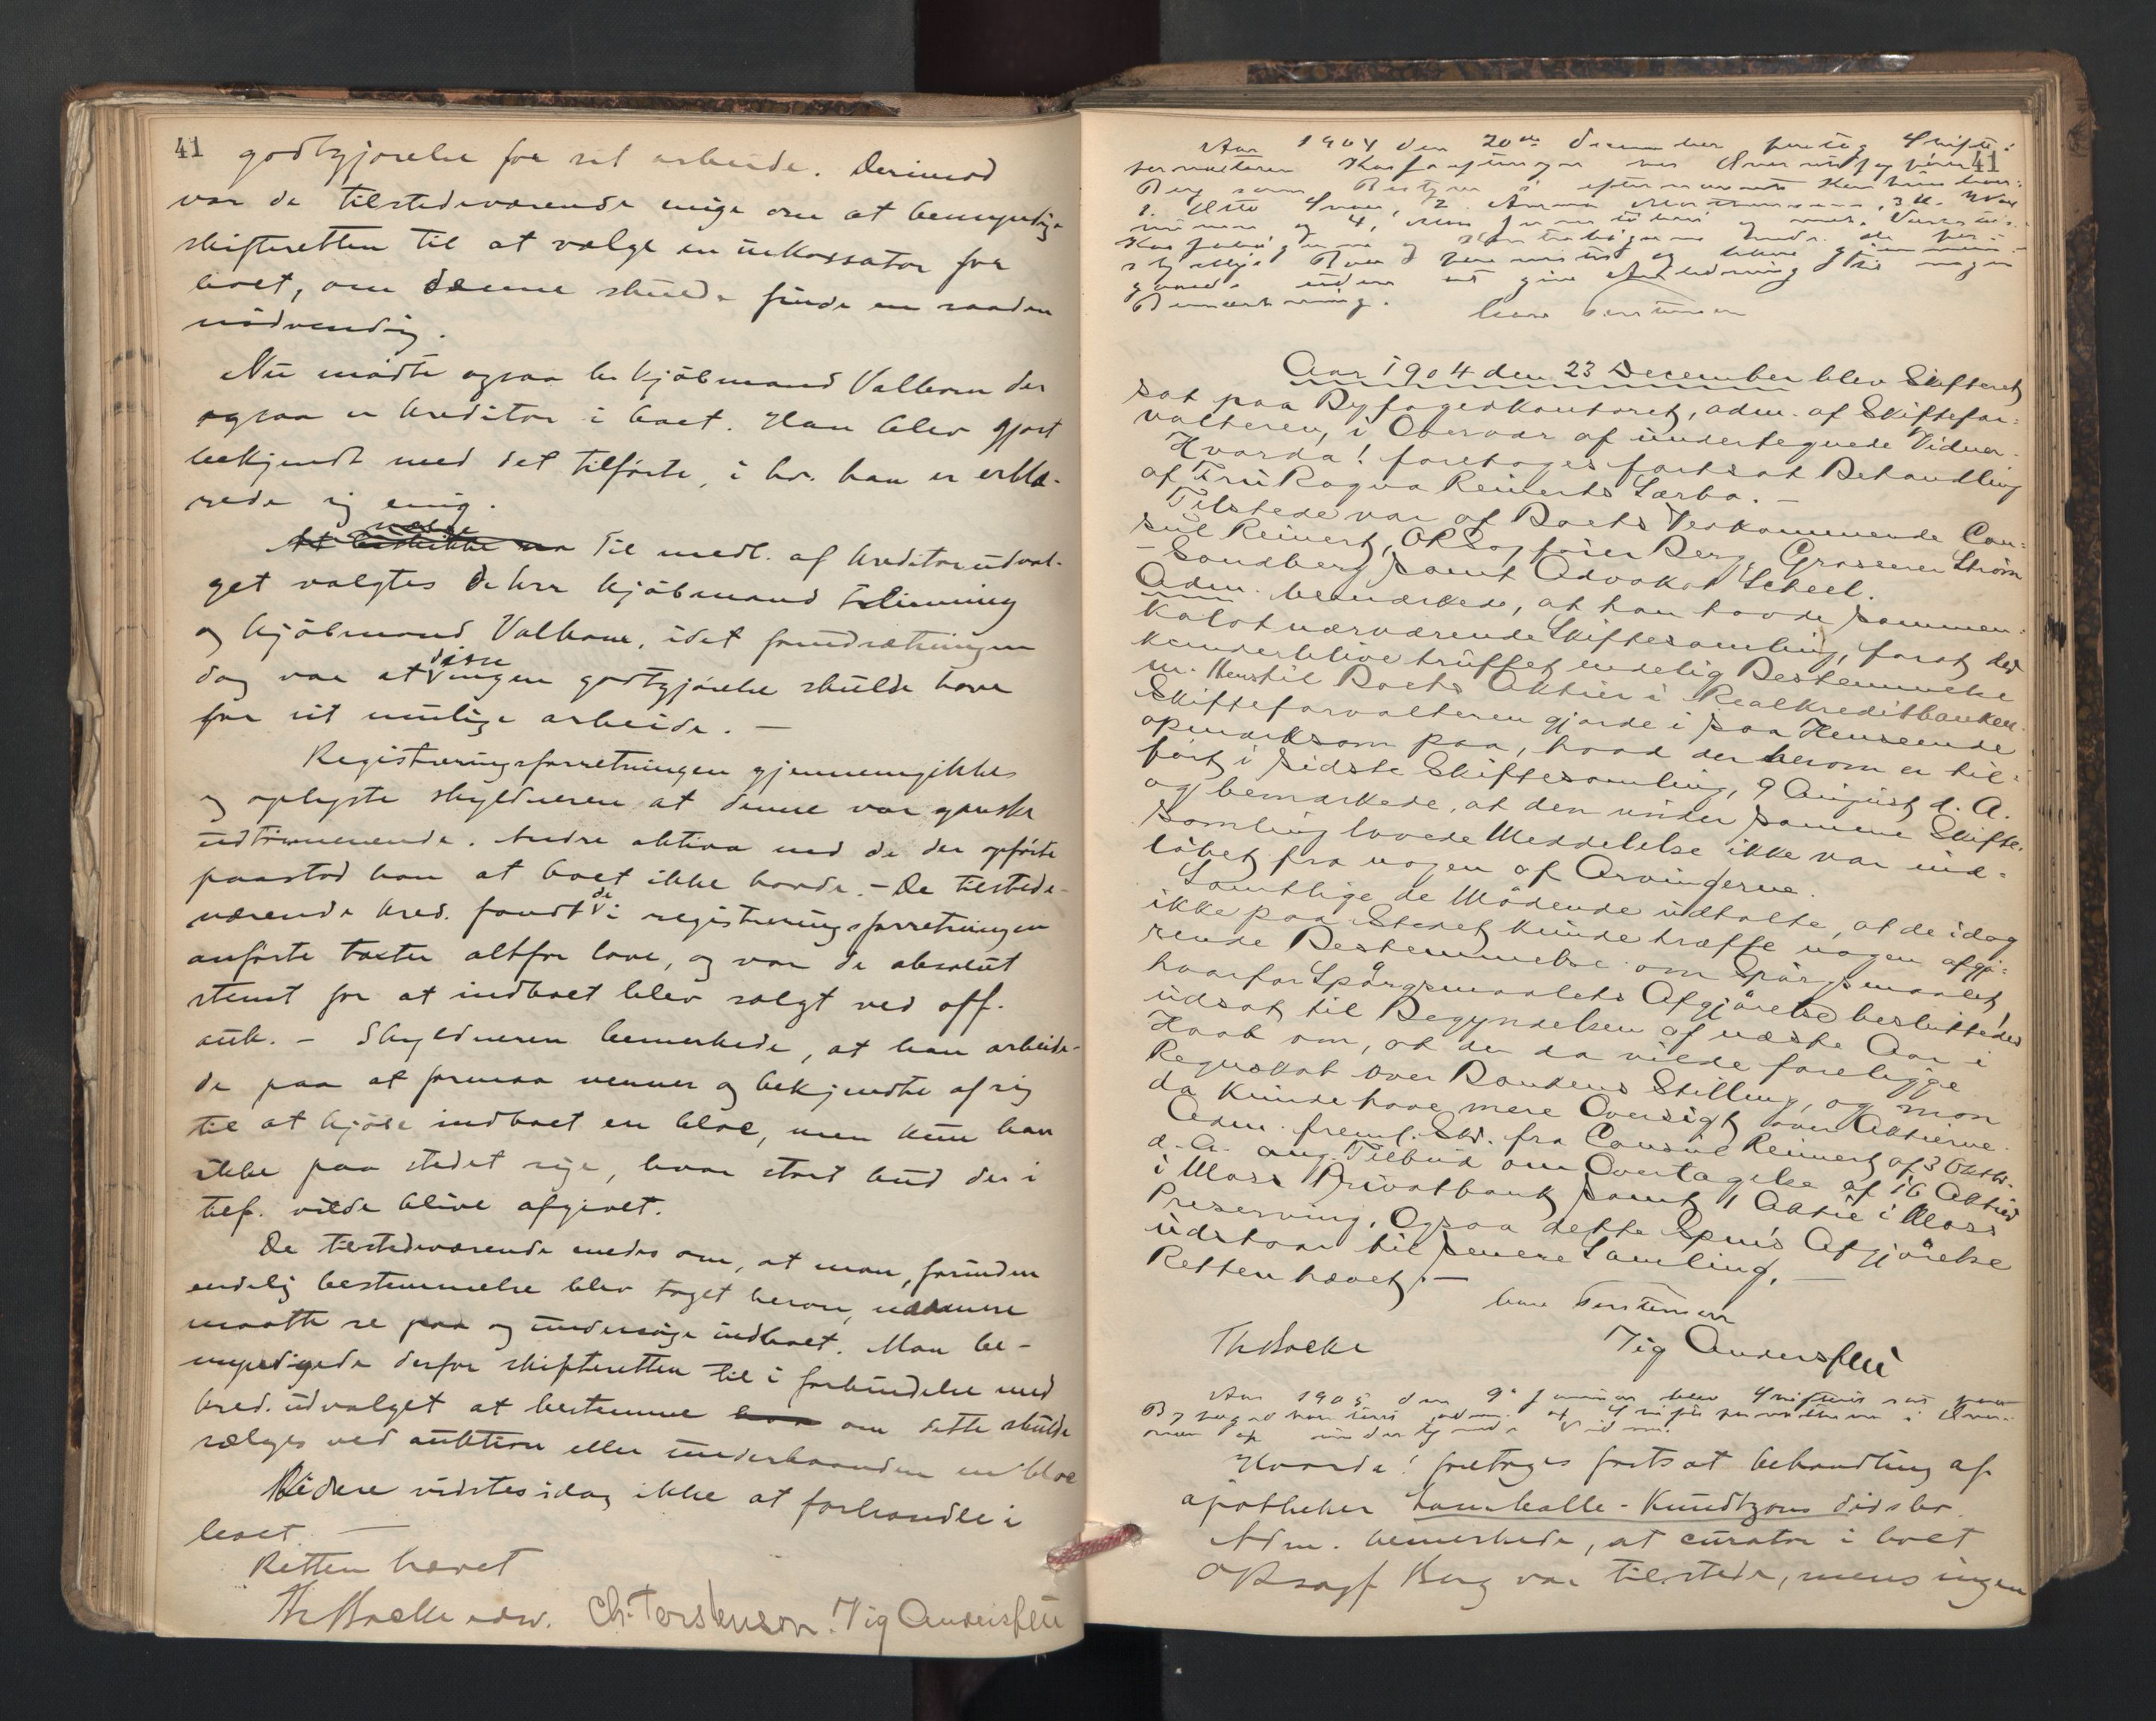 41
godtgjørelse for sit arbeide. Derimod
var de tilstedeværende enige om at bemyndige
skifteretten til at vælge en inkassator for
boet, om denne skulde finde en saadan
nødvendig.
Nu mødte ogsaa hr kjøbmand Valborn der
ogsaa er kreditor i boet. Han blev gjort
bekjendt med det tilførte, i hv. han er erklæ-
rede sig enig.
Til medl. af kreditorudval-
get valgtes de hrr kjøbmand
og kjøbmand Valborn, idet forudsætningen
dog var at disse ingen godtgjørelse skulde have
for sit mulige arbeide. —
Registreringsforretningen gjennemgikkes
og oplyste skyldneren at denne var ganske
udtømmende. Andre aktiva end de der opførte
paastod han at boet ikke havde. - De tilstede-
værende kred. fandt de i registreringsforretningen
anførte taxter altfor lave, og var de absolut
stemt for at indboet blev solgt ved off.
auk. - Skyldneren bemerkede, at han arbeide-
de paa at formaa venner og bekjendte af sig
til at kjøbe indboet en bloc, men kun han
ikke paa stedet sige, hvor stort bud der i
tilf. vilde blive afgivet.
De tilstedeværende enedes om, at man, forinden
endelig bestemmelse blev taget herom, nærmere
maatte se paa og undersøge indboet. Man be-
myndigede derfor skifteretten til i forbindelse med
kred. udvalget at bestemme om dette skulde
sælges ved auktion eller underhaanden en bloc
Videre vidstes idag ikke at forhandle i
boet. —
Retten hævet
Th Bache edw. Ch: Torstenson. Vig Andersen
41
Aar 1904 den 20de December foretog Skifte:
forvalteren Kasseeftersyn
Berg som Bestyrer i efternævnte
1. 2. Anna 3.
og 4,
Boer
uden at give Anledning til nogen
Bemærkning.
Torstenson
Aar 1904 den 23 December blev Skifteret
sat paa Byfogedkontoret, adm. af Skiftefor:
valteren, i Overvær af undertegnede Vidner.
Hvorda! foretoges fortsat Behandling
af Fru Ragna Reinerts Særbo. —
Tilstede var af Boets Vedkommende Con:
sul Reinert, ORSagfører Berg, Grosserer Strøm
- Sandberg samt Advokat Scheel.
Adm. bemærkede, at han havde sammen:
kaldt nærværende Skiftesamling, forat det
kunde blive truffet endelig Bestemmelse
m. Hens. til Boets Aktier i Realkreditbanken.
Skifteforvalteren gjorde i saa Henseende
opmærksom paa, hvad der herom er til:
ført i sidste Skiftesamling, 9 August d. A.
og bemærkede, at den under samme Skifte:
samling lovede Meddelelse ikke var ind:
løbet fra nogen af Arvingerne.
Samtlige de Mødende udtalte, at de idag
ikke paa Stedet kunde træffe nogen afgjø:
rende Bestemmelse om Spørgsmaalet,
hvorfor Spørgsmaalets Afgjørelse besluttedes
udsat til Begyndelsen af næste Aar i
Haab om, at der da vilde foreligge
Regnskab over Bankens Stilling, og man
da kunde have mere Oversigt over Aktierne.
Adm. freml. Skr. fra Consul Reinert af 3 Oktbr.
d. A. ang. Tilbud om Overtagelse af 16 Aktier
i Moss Privatbank samt 1 Aktie i Moss
Preserving. Ogsaa dette Spm's Afgjørelse
udstaar til senere Samling. —
Retten hævet. —
Torstenson
Th Bache Vig Andersen
Aar 1905 den 9de Januar blev Skifteret sat paa
Byfogedkontoret, adm. af Skifteforvalteren i Over:
vær af undertegnede Vidner.
Hvorda! foretoges fortsat behandling af
apotheker Knudtzons dødsbo.
Adm. bemerkede, at curator i boet
ORsagf Berg var tilstede, mens ingen